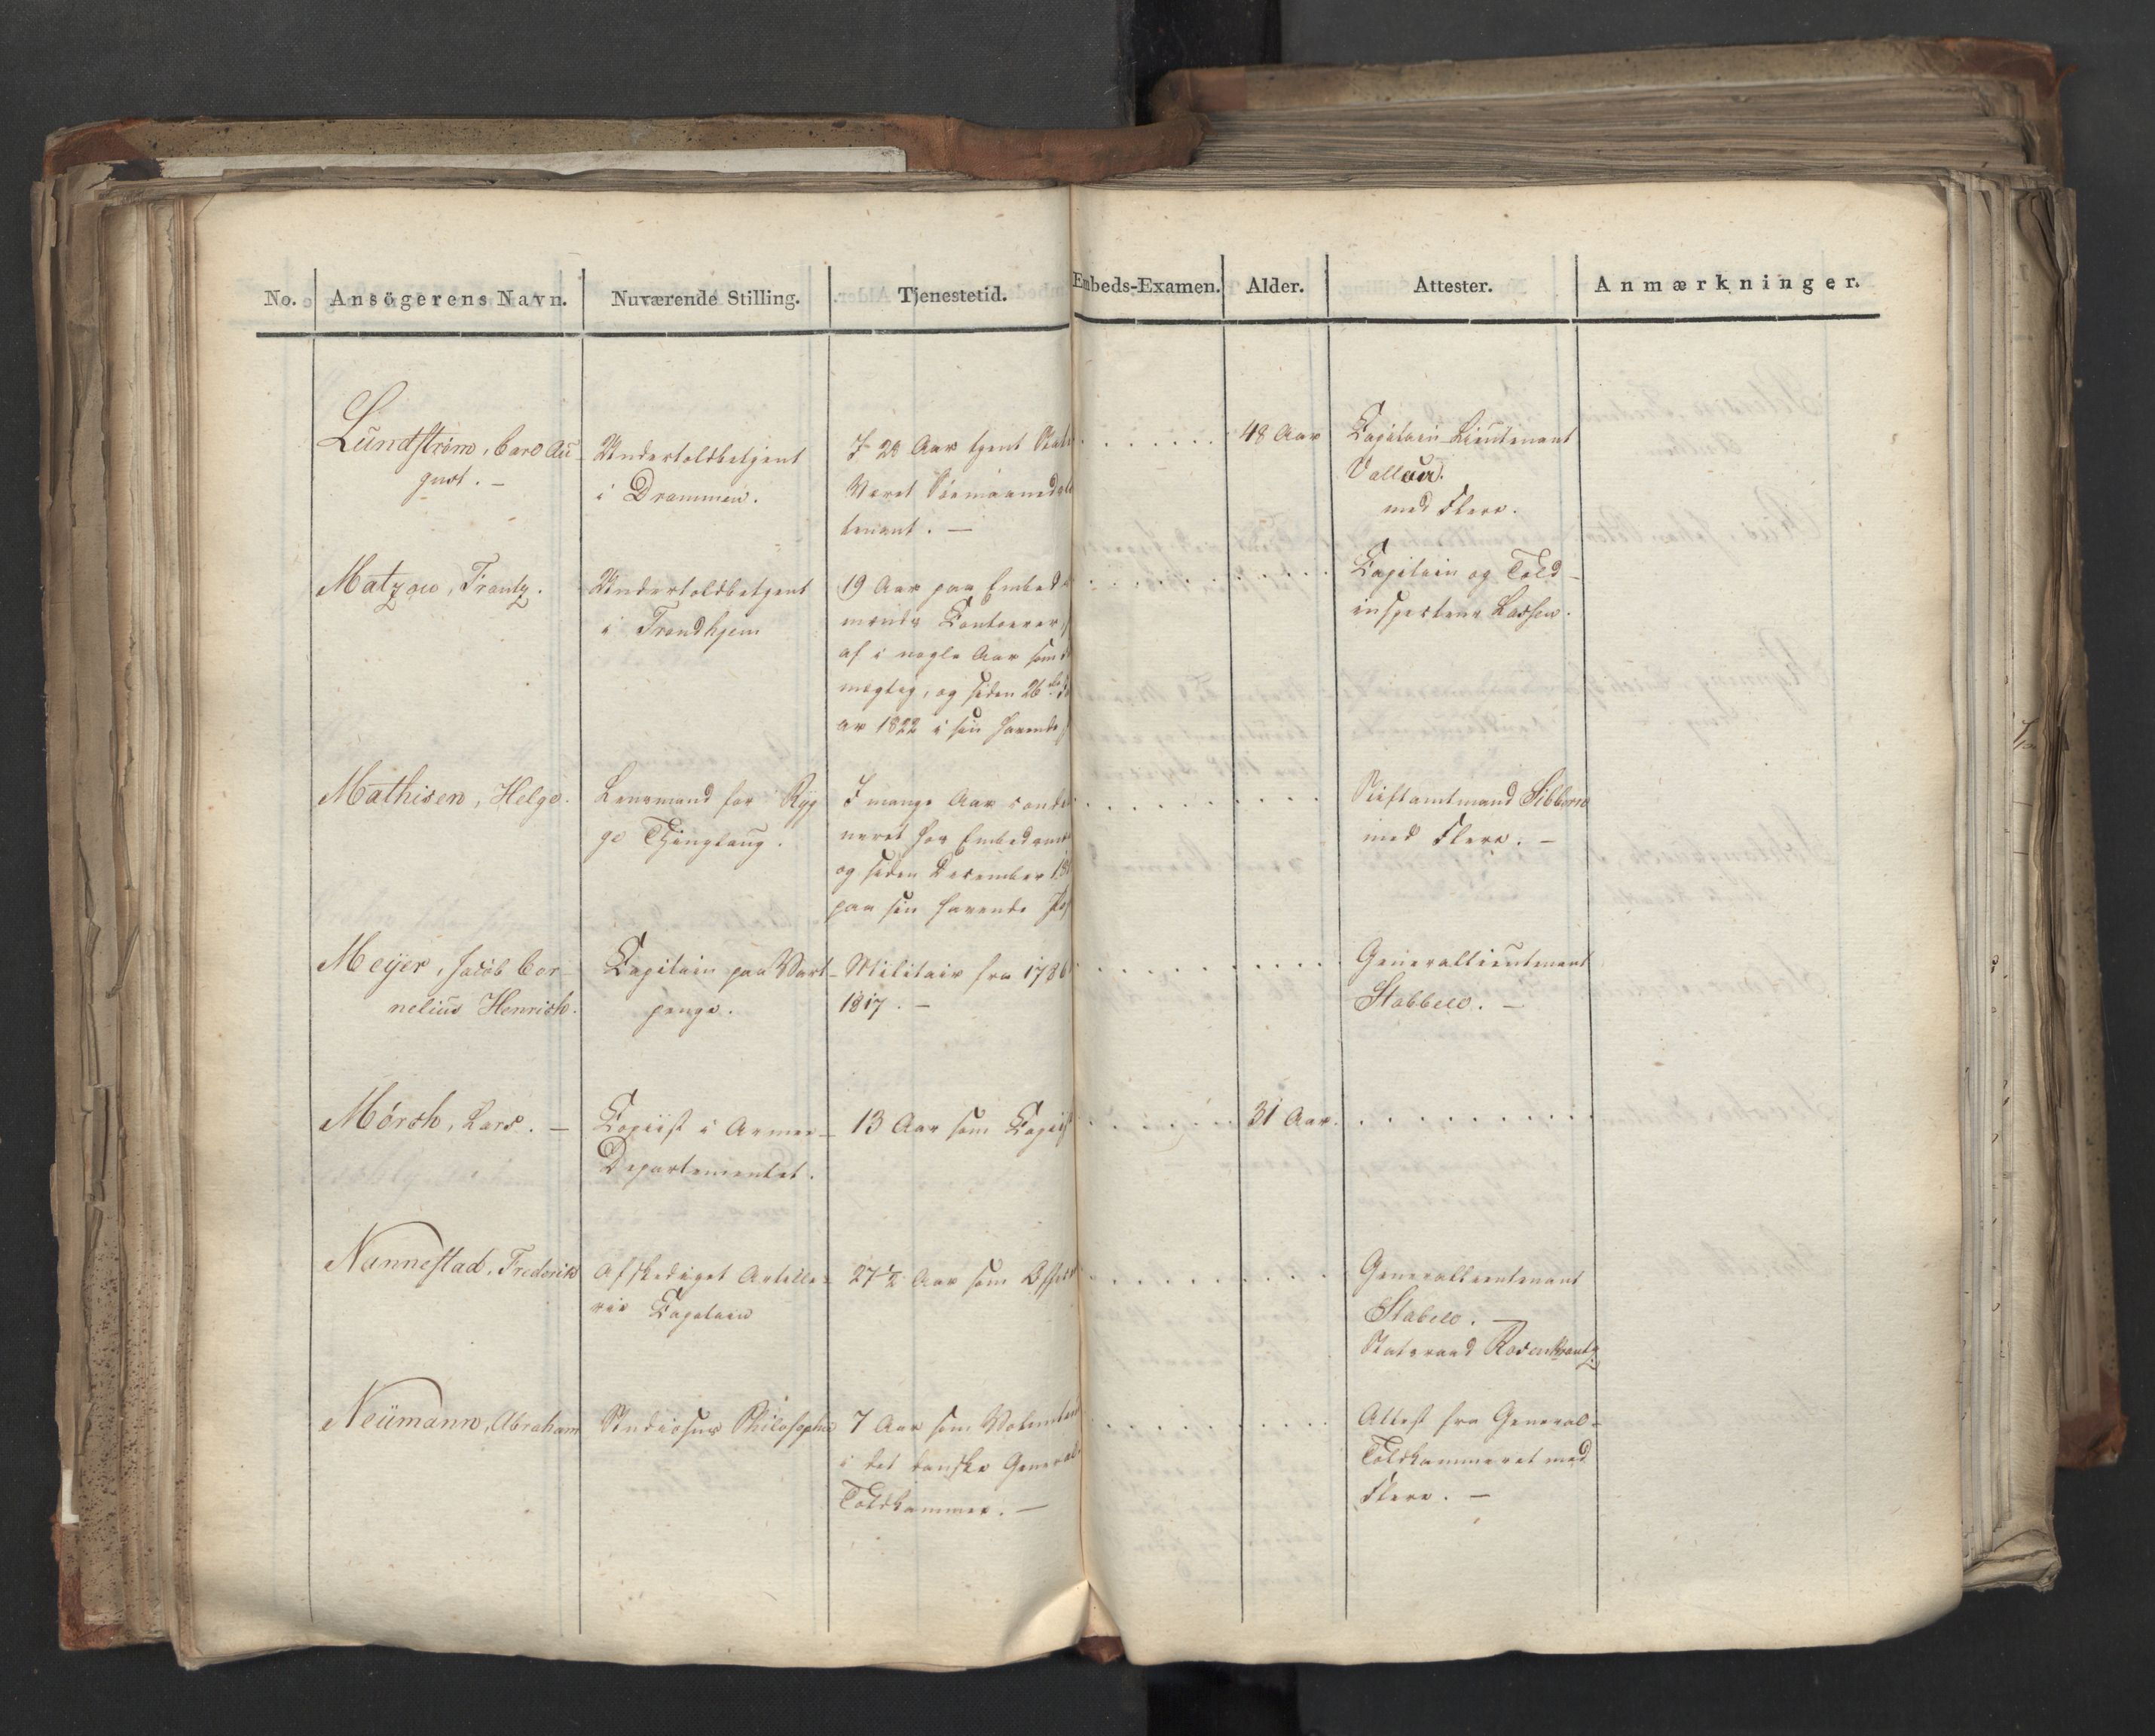 No. Ansögerens Navn. Nuværende Stilling. Tjenestetid. Embeds-Examen. Alder. Attester. Anmærkninger.
Lundstrøm, Carl Au-
gust. —
Undertoldbetjent
i Drammen.
I 28 Aar tjent
Været
tenant. —
48 Aar
Capitain-Lieutenant
med Flere.
Matzow, Frantz.
Undertoldbetjent
i Trondhjem
19 Aar paa Embeds
mænds Contoerer,
af i nogle Aar som
mægtig, og siden 26de
ar 1822 i sin havende
Capitain og Told-
inspecteur Lassen.
Mathisen, Helge.
Lensmand for Ryg
ge Thinglaug.
I mange Aar condi
neret hos Embedsmæ
og siden December
paa sin havende
Stiftamtmand Sibbern
med Flere. —
Meyer, Jacob Cor-
nelius Henrich.
Capitain paa Vart-
penge.
Militair fra 1786
1817. —
Generallieutenant
Stabbell. —
Mörch, Lars. —
Copiist i Armee-
Departementet.
13 Aar som Copiist
31 Aar.
Nannestad, Frederik
Afskediget Artille-
rie Capitain
27½ Aar som
Generallieutenant
Stabell. —
Statsraad Rosenkrantz
Neumann, Abraham
Studiosus Philosophie
7 Aar som
i det danske General
Toldkammer. —
Attest fra General-
Toldkammeret med
Flere. —